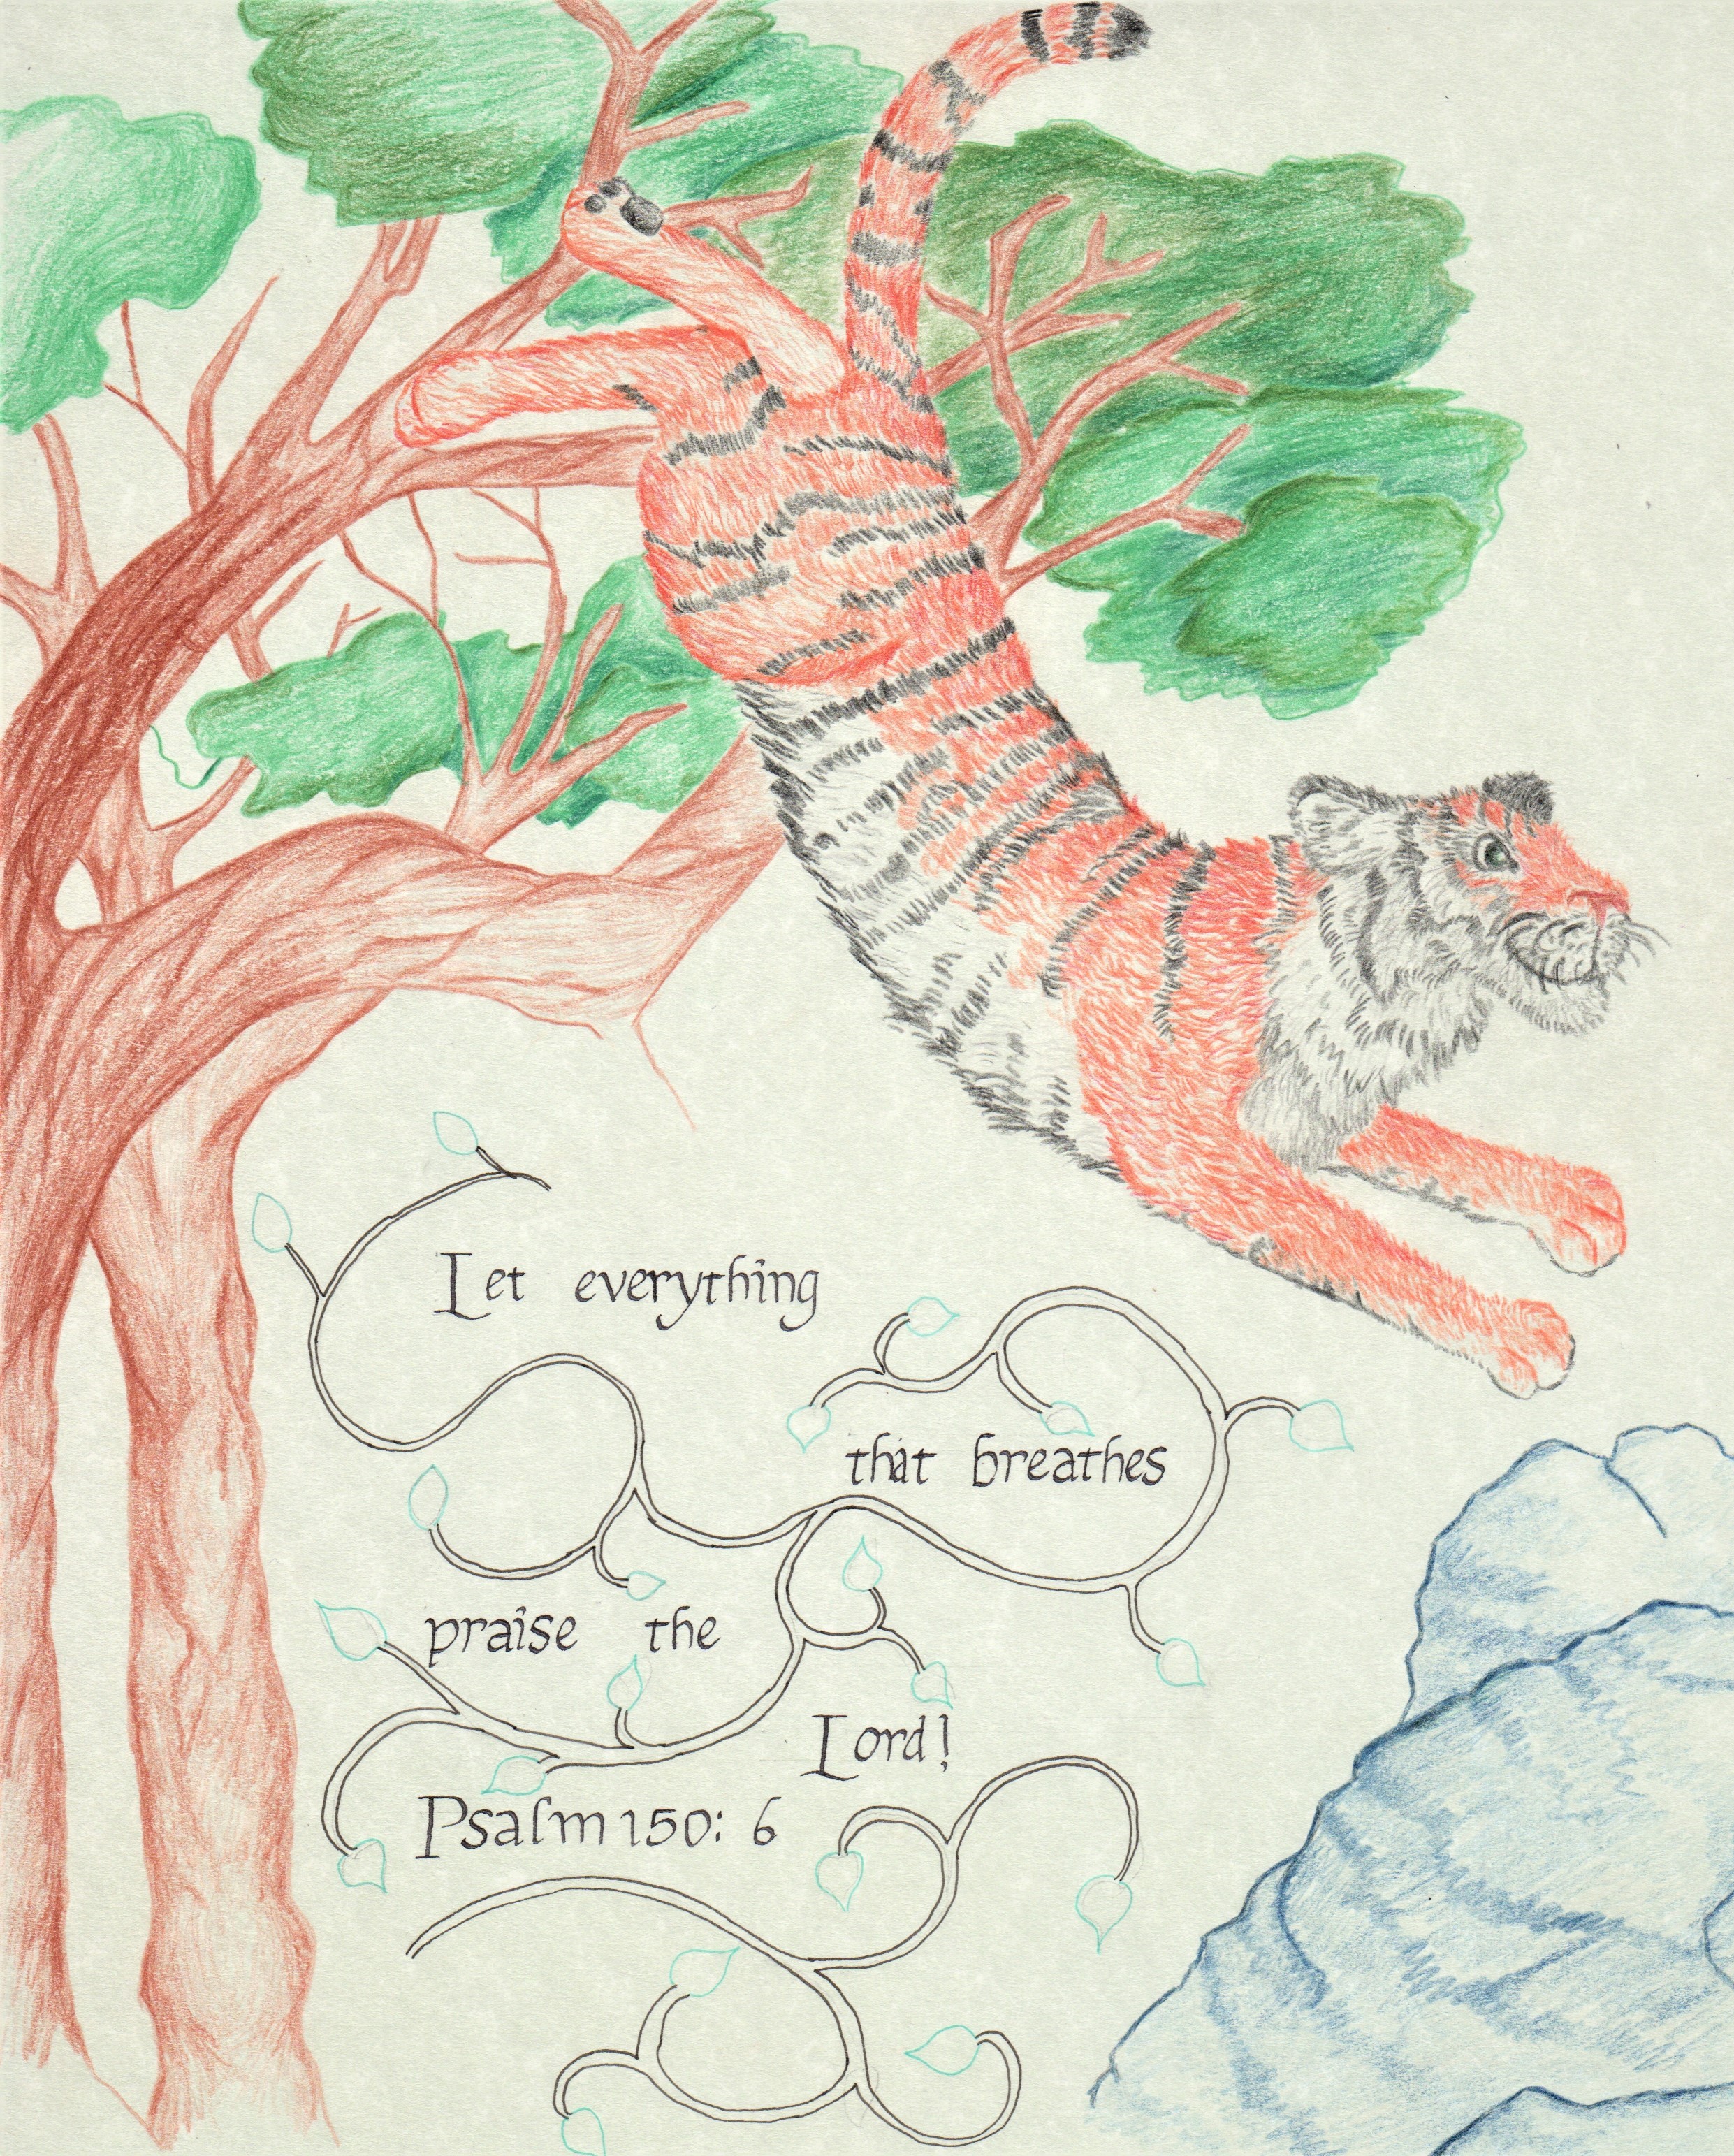 Let everything
that breathes
praise the
Lord!
Psalm 150: 6